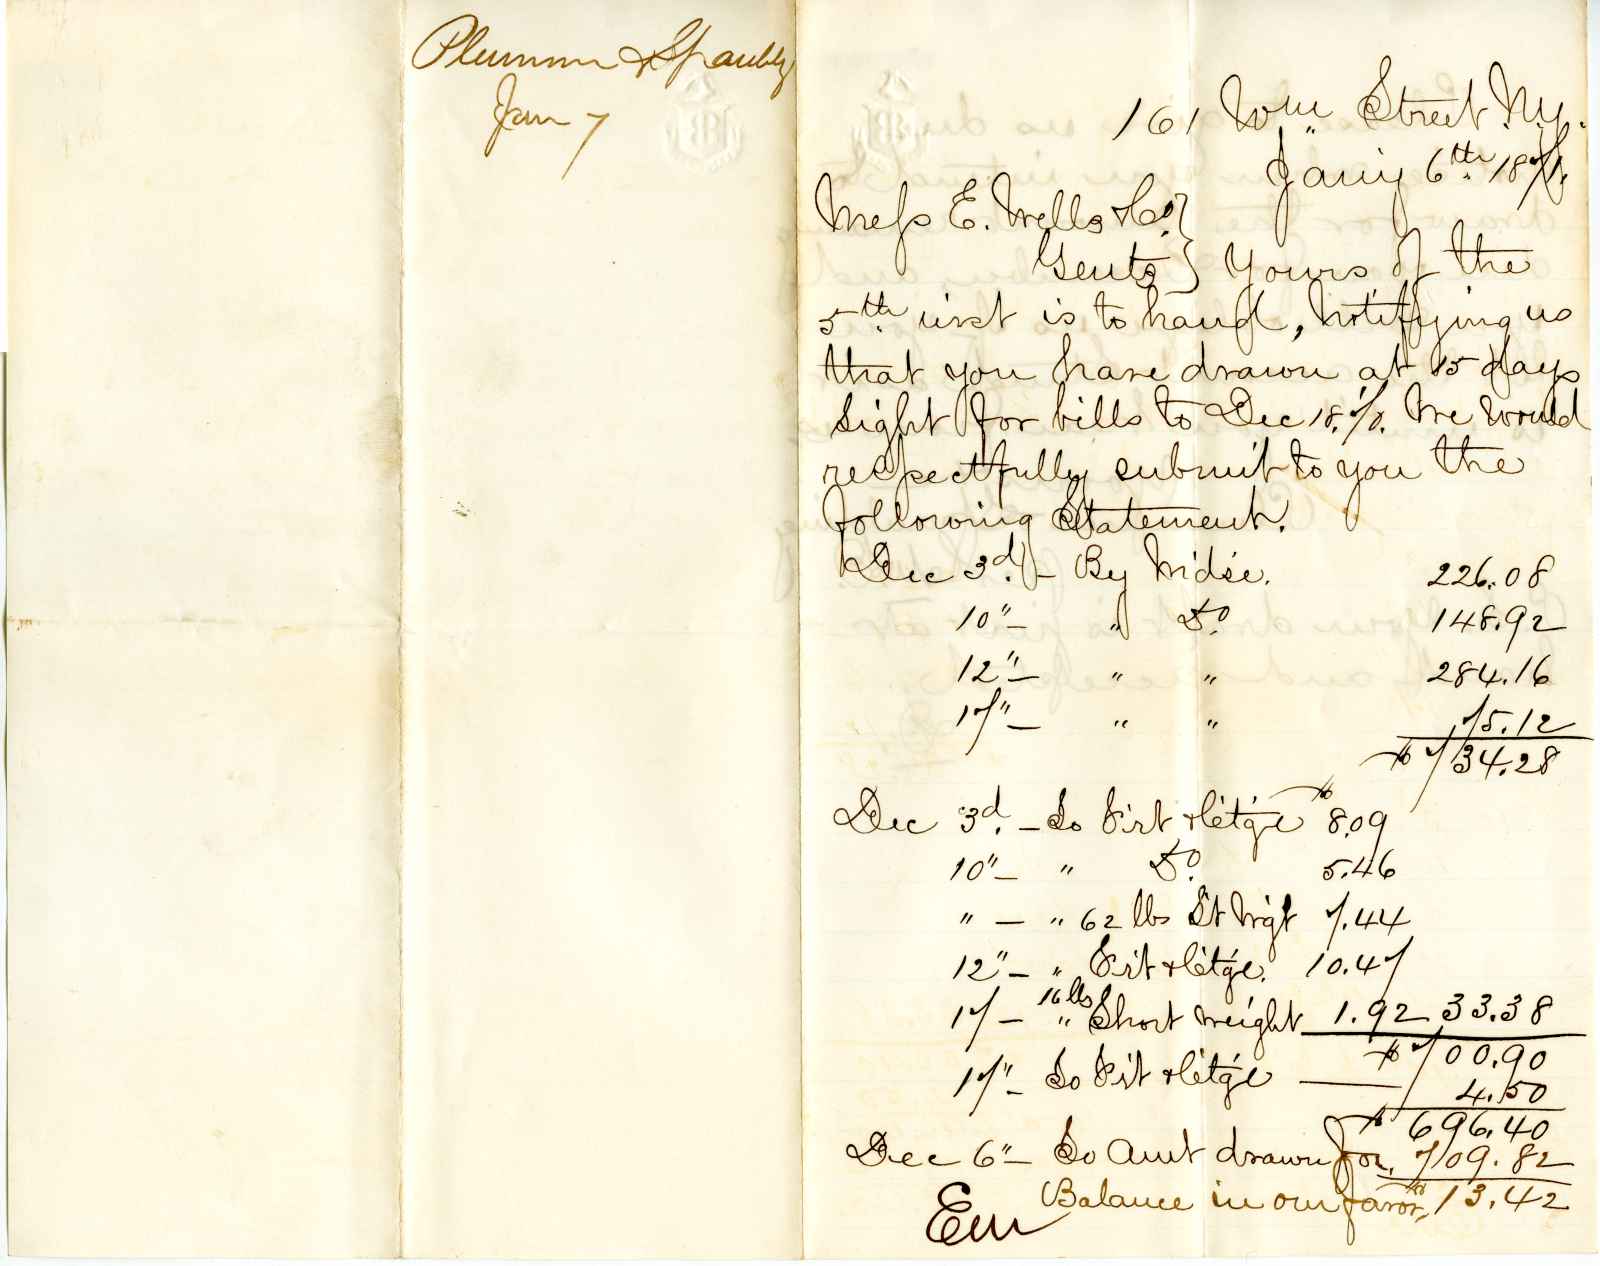 Plummer & Spauldy
Jan 7
161 Wm Street N.Y.
Jan'y 6th 1871.
Mess E. Wells & Co.
Gents Yours of the
5th inst is to hand, notifying us
that you have drawn at 15 days
sight for bills to Dec 18.71. We would
respectfully submit to you the
following Statement.
Dec 3d. - By Mdse. 226.08
10" - " Do. 148.92
12" - " " 284.16
17" - " " 75.12
$ 734.28
Dec 3d. - To Frt & Ct'ge $ 8.09
10" - " Do. 5.46
" - " 62 lbs St Wgt 7.44
12" - " Frt & Ct'ge. 10.47
17 - " 16 lbs Short weight 1.92 33.38
$ 700.90
17" - To Frt & Ct'ge 4.50
$ 696.40
Dec 6" - To Amt drawn for, 709.82
Balance in our favor, $ 13.42
EW